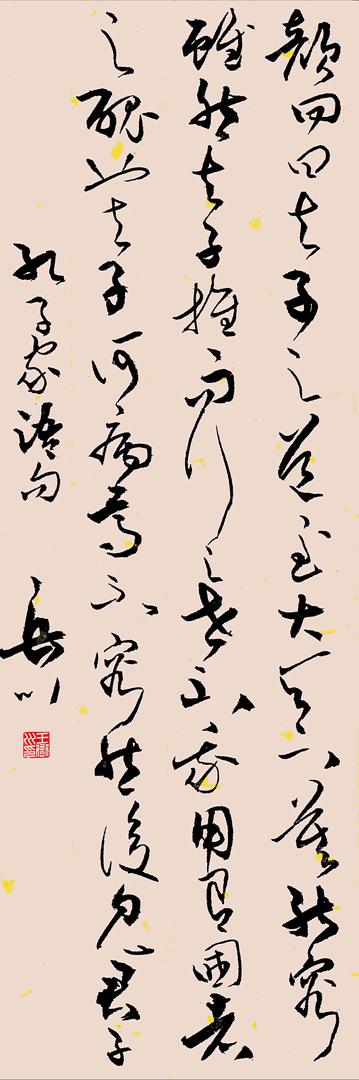 顔回曰夫子之道至大天下莫能容
雖然夫子推而行之世不我用有國者
之醜也夫子何病焉不容然後見君子
孔子家語句
岳川